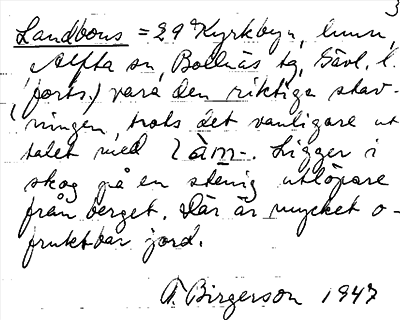 3
Landbons = 29 Kyrkbyn,
Alfta sn, Bollnäs tg, Gävl. l.
(forts.) vara den riktiga stav-
ningen, trots det vanligare ut
talet med làm-. Ligger i
skog på en stenig utlöpare
från berget. Där är mycket o-
fruktbar jord.
A. Birgerson 1947